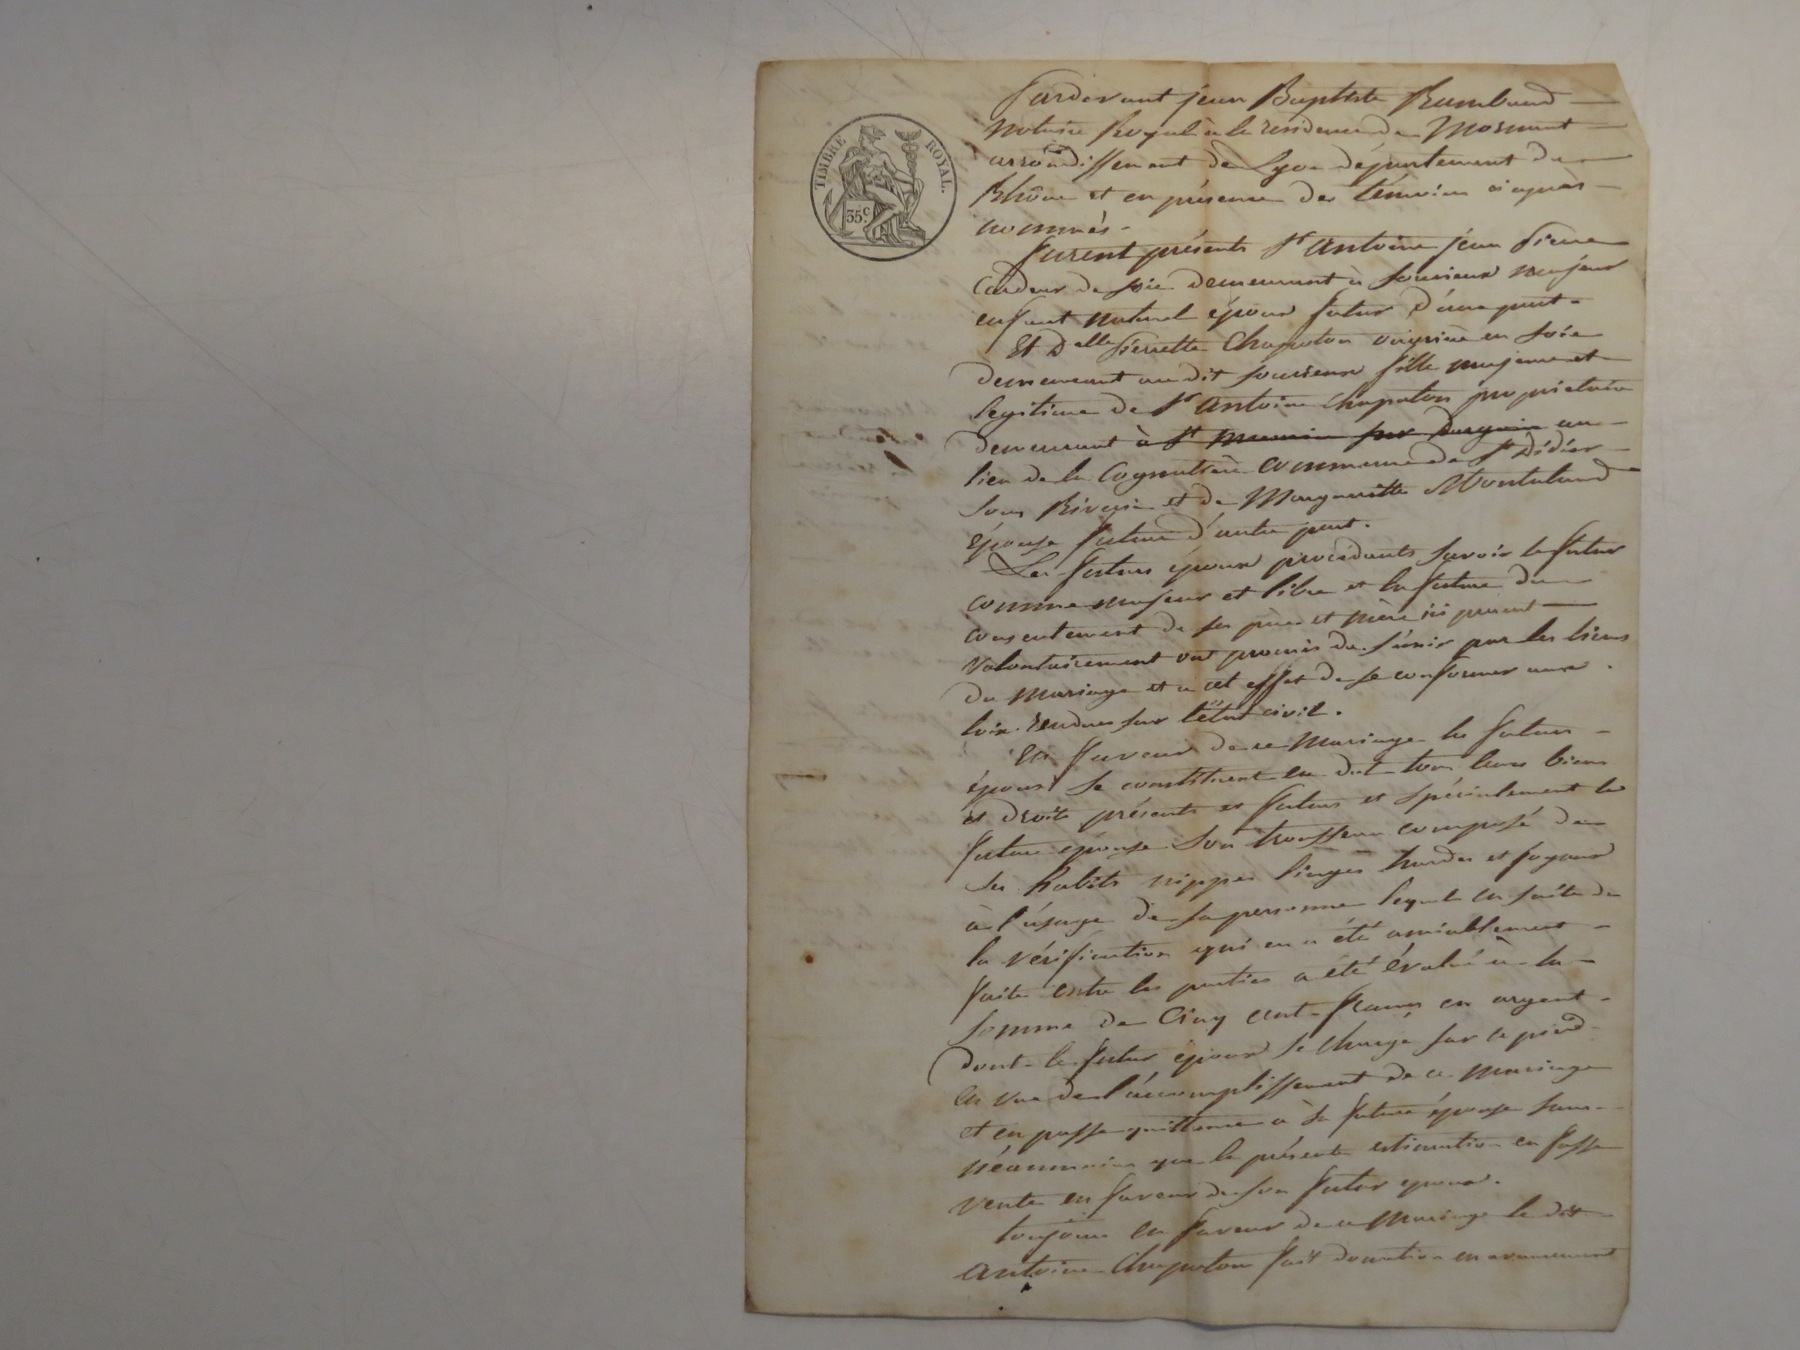 TIMBRE ROYAL.
35c.
Pardevant jean Baptiste Rambaud
Notaire Royal à la residence de Mornant
arrondissement de Lyon département du
Rhône et en présence des témoins ci après
nommés.
furent présents Sr Antoine jean Pierre
Cardeur de soie demeurant à Soucieux majeur
enfant naturel époux futur d'une part.
Et Dlle Pierrette Chapoton ouvrière en soie
demeurant au dit Soucieux fille majeure et
legitime de Sr Antoine Chapoton propriétaire
demeurant à St au
lieu de la commune de St Didier
sous Riverie et de Margueritte
épouse future d'autre part.
Les futurs époux procédants savoir le futur
comme majeur et libre et la future du
consentement de ses père et mère ici présent
volontairement ont promis de s'unir par les liens
du mariage et a cet effet de se conformer aux
loix rendues sur l'état civil.
En faveur de ce mariage les futurs
époux se constituent en dot tous leurs biens
et droits présents et futurs et spécialement la
future épouse son trousseau composé de
ses habits nippes linges hardes et joyaux
à l'usage de sa personne lequel en suite de
la vérification qui en a été amiablement
faite entre les parties a été évalué à la
somme de Cinq cent francs en argent
dont le futur époux se charge sur ce pied
en vue de l'accomplissement de ce mariage
et en passe quittance à sa future épouse sans
néanmoins que la présente estimation en fasse
vente en faveur de son futur epoux.
toujours en faveur de ce mariage le dit
Antoine Chapoton fait donation en avancement